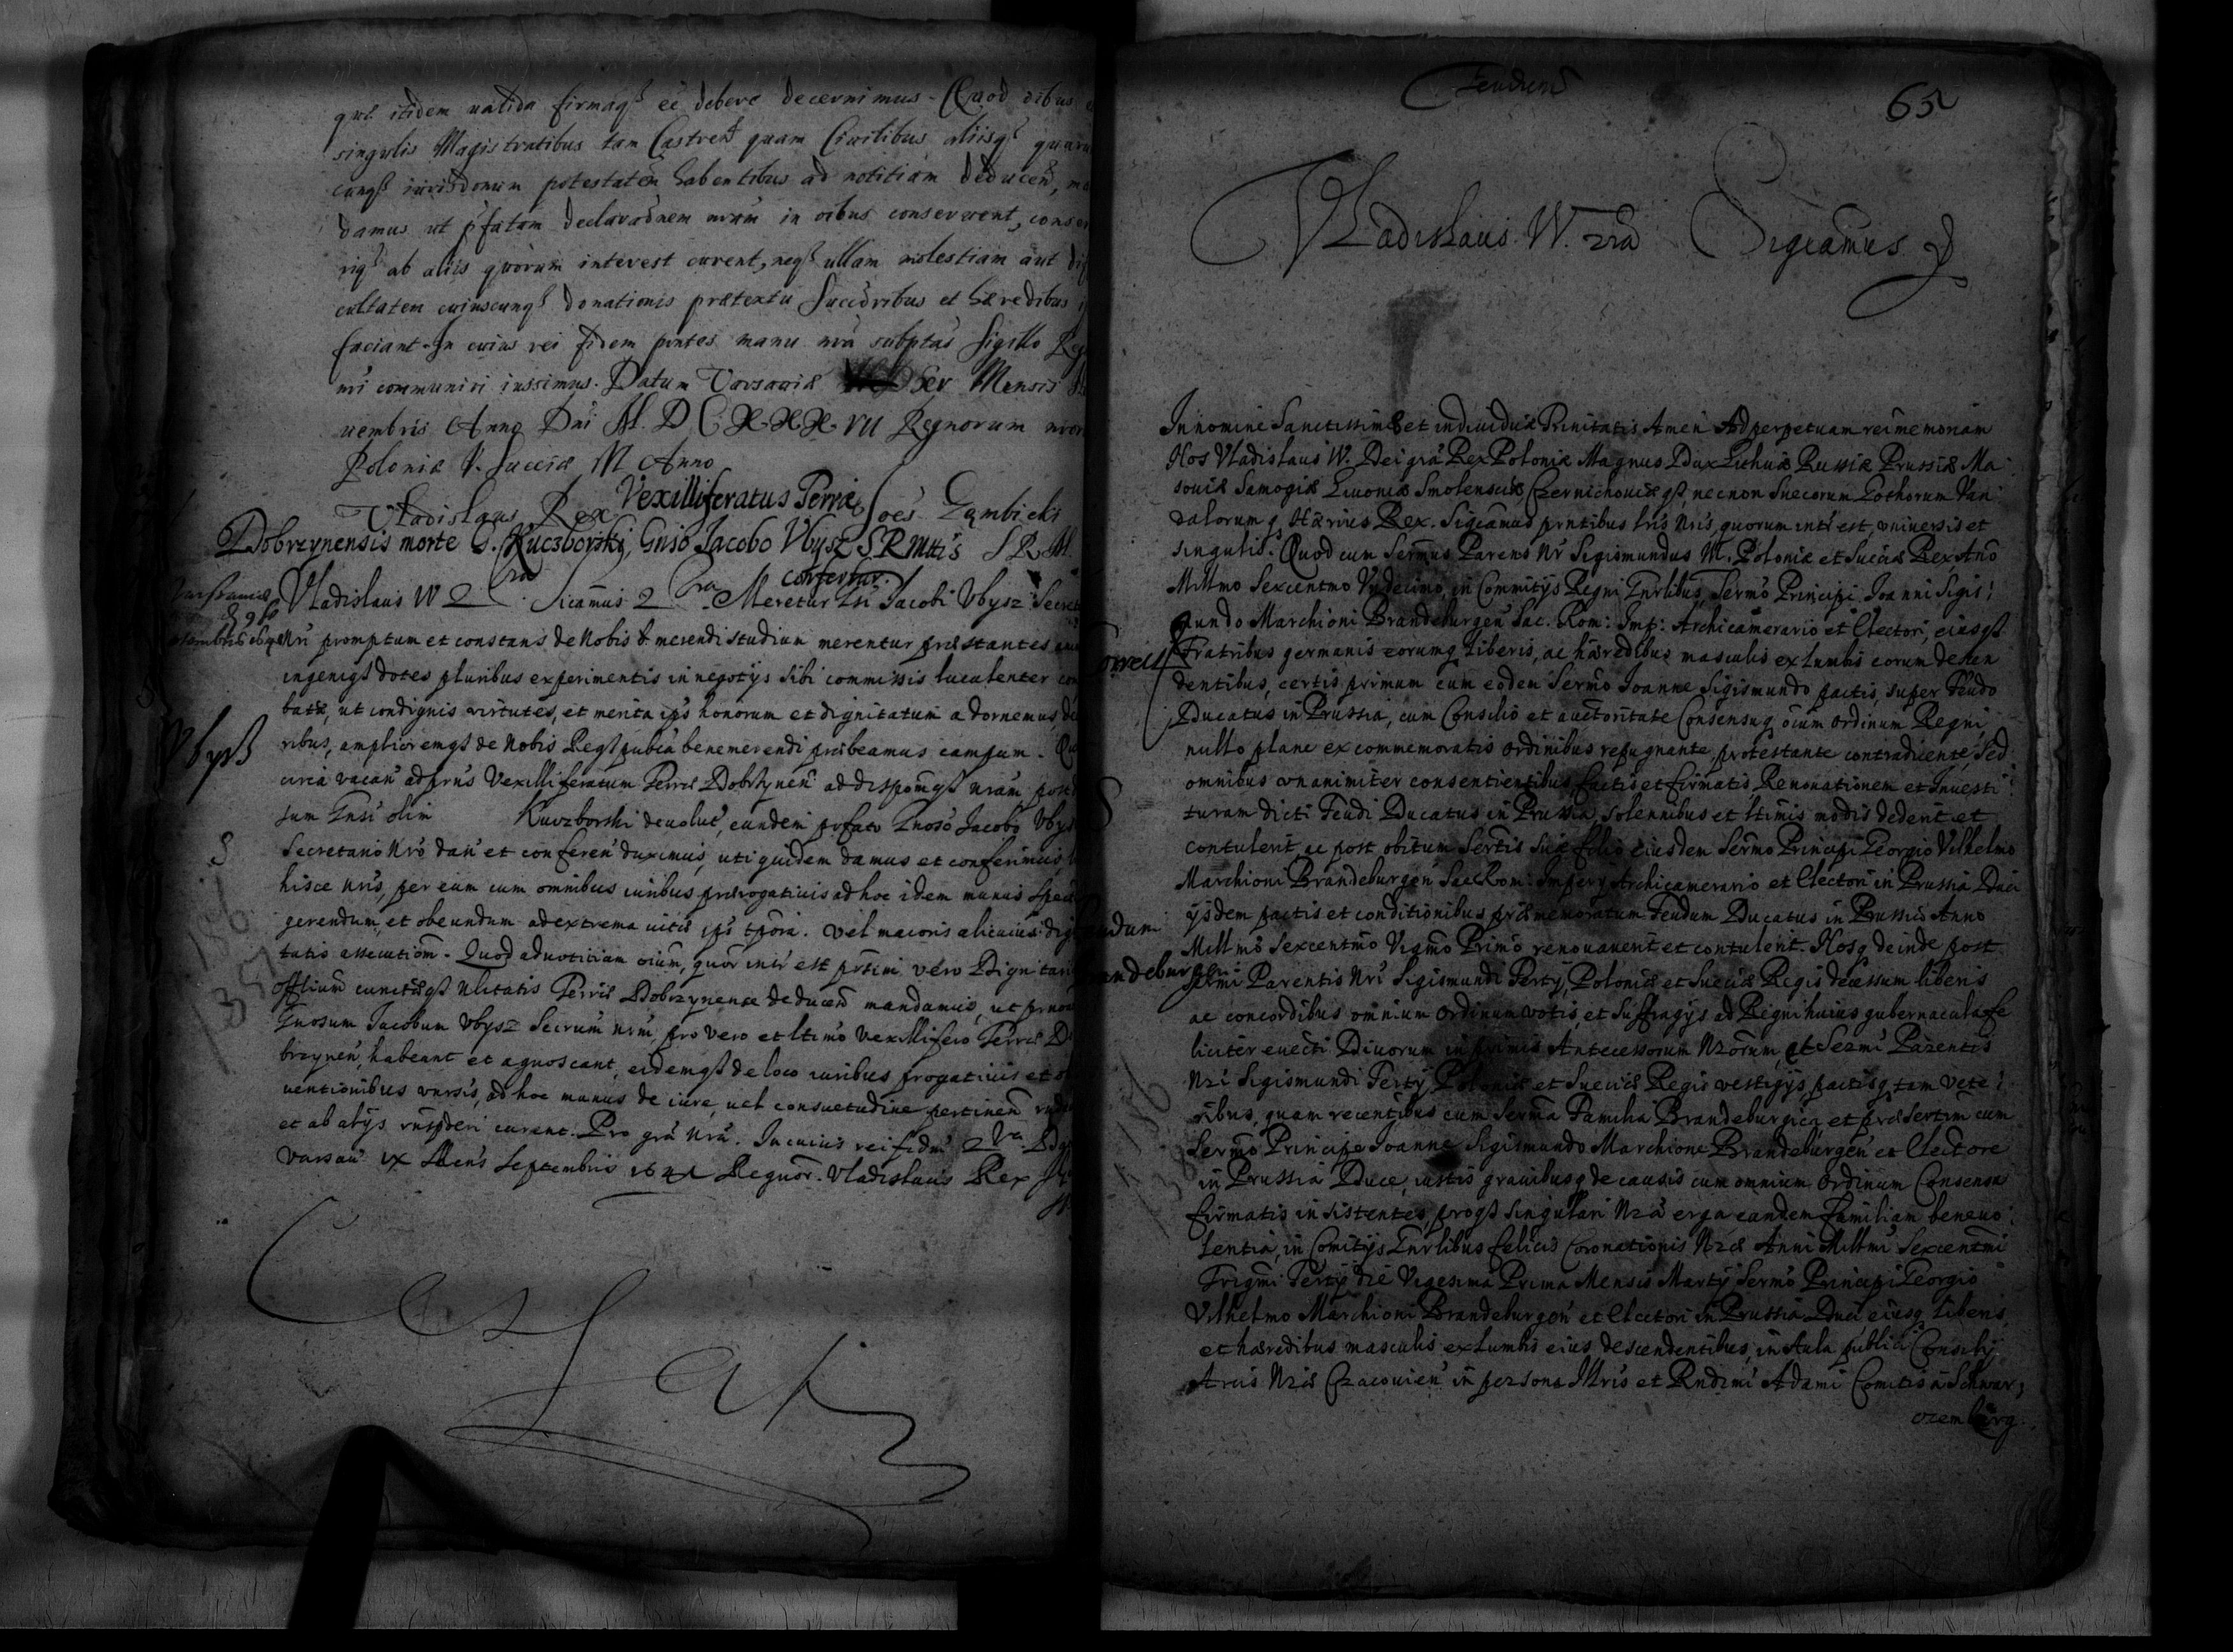 qué itidem valida firmaqꝫ eē debere decernimus. Quod oibus
singulis Magistratibus tam Castreñ quam Civilibus aliisqꝫ
cunqꝫ iurisdonem potestatem habentibus ad notitiam deducen̄,
damus ut p̄fatam declaraōnem nram in oibus conservent,
riqꝫ ab aliis quorum interest curent, neqꝫ ullam molestiam aut
cultatem cuiuscunqꝫ donationis prætextu Succōribus et hæredibus
faciant. In cuius rei fidem pntes manu nrā subptas Sigillo
nri communiri iussimus. Datum Varsaviæ Mensis
uembris Anno Dni M. D C XXX VII Regnorum
Poloniæ V. Sueciæ VI Anno
Vladislaus Rex
Vexilliferatus Terræ
Dobrzynensis morte G. Kuczborski, Gnso Jacobo Vbysz S. R. Mttis
confertur.
Vladislaus IV 2 Sicamus 2 Meretur Gsi Jacobi Vbysz
Nri promptum et constans de Nobis b. merendi studium merentur præstantes
ingeniqꝫ dotes pluribus experimentis in negotys sibi commissis luculenter
batæ, ut condignis virtutes, et merita ips honorum et dignitatum adornemus,
ribus, amplioremqꝫ de Nobis Reqꝫ publica benemerendi præbeamus campum.
circa vacan̄ ad prns Vexilliferatum Terræ Dobrzynen̄ ad dispōmqꝫ nram
tum Gnsi olim Kuczborski devolut, eundem prfato Gnoso Jacobo
Secretario Nro dan̄ et conferen̄ duximus, uti quidem damus et conferimus
hisce nris, per eum cum omnibus iuribus prærogativis ad hoc idem munus
gerendum et obeundum ad extrema vitæ ips tpora. vel maioris alicuius
tatis assecutiōm. Quod ad notitiam oium, quōr intr est prtim vero
Offliumqꝫ cunctæqꝫ Nlitatis Terræ Dobrzynensæ deducen̄ mandamus, ut
Gnosum Jacobum Vbysz Secrum nrm, pro vero et ltimo vexillifero Terræ
brzynen̄, habeant et agnoscant, eidemqꝫ de loco iuribus progativis et
ventionibus vnrsis, ad hoc munus de iure, vel consuetudine pertinen̄
et ab alys rnspderi curent. Pro grā Nrā. In cuius rei fidm 2
Varsaū IX Mens Septembris 1641 Regnōr. Vladislaus Rex
Vbysz
Feudum
65
Vladislaus IV. 2ra Sigcamus
In nomine Sanctissimæ et individuæ Trinitatis Amen Ad perpetuam rei memoriam
Nos Vladislaus IV. Dei grā Rex Poloniæ Magnus Dux Lithuæ Russiæ Prussiæ Ma
soviæ Samogiæ Livoniæ Smolensciæ, Czernichoviæqꝫ necnon Suecorum Gothorum Van
dalorumq Hærius Rex. Sigcamus prntibus lris Nris, quorum intr est, vniversis et
singulis. Quod cum Sermus Parens Nr Sigismundus III. Poloniæ et Sueciæ Rex Ano
Millmo Sexcentmo Vndecimo, in Commitys Regni Gnrlibus, Sermo Principi Joanni Sigis:
mundo Marchioni Brandeburgen̄ Sac. Rom: Imp: Archicamerario et Electori, eiusqꝫ
Fratribus germanis eorumq liberis, ac hæredibus masculis ex lumbis eorum decen
dentibus, certis primum cum eodem Sermo Joanne Sigismundo pactis, super Feudo
Ducatus in Prussia, cum Consilio et auctoritate Consensuq oium ordinum Regni,
nullo plane ex commemoratis ordinibus repugnante, protestante contradicente, sed
omnibus vnanimiter consentientibus factis et firmatis, Renovationem et Investi:
turam dicti Feudi Ducatus in Prussia, solennibus et ltimis modis dederit et
contulerit, ac post obitum Sertis Suæ filio eiusdem Sermo Principi Georgio Vilhelmo
Marchioni Brandeburgen̄ Sac Rom: Impery Archicamerario et Electori in Prussia Duci
ysdem pactis et conditionibus præmemoratum Feudum Ducatus in Prussia Anno
Millmo Sexcentmo Vigmo Primo renovaverit et contulerit. Nosq deinde post
Sermi Parentis Nri Sigismundi Terty, Poloniæ et Sueciæ Regis decessum liberis
ac concordibus omnium ordinum votis, et suffragys ad Regni huius gubernacula fe
liciter evecti Divorum in primis Antecessorum Nrorum, et Sermi Parentis
Nri Sigismundi Terty Poloniæ et Sueciæ Regis vestigys, pactisq tam vete:
ribus, quam recentibus cum Serma Familia Brandeburgica et præsertim cum
Sermo Principe Joanne Sigismundo Marchione Brandeburgen̄ et Electore
in Prussia Duce, iustis gravibusq de causis cum omnium Ordinum Consensu
firmatis insistentes, proqꝫ singulari Nrā erga eandem Familiam benevo:
lentia, in Comitys Gnrlibus felicis Coronationis Nræ Anni Millmi Sexcentmi
Trigmi Terty die Vigesima Prima Mensis Marty Sermo Principi Georgio
Vilhelmo Marchioni Brandeburgen̄ et Electori in Prussia Duci, eiusq liberis,
et hæredibus masculis ex Lumbis eius descendentibus, in Aula publici Consily
Arcis Nræ Cracovien̄ in persona Illris et Rndmi Adami Comitis à Schwar,
czemburg.